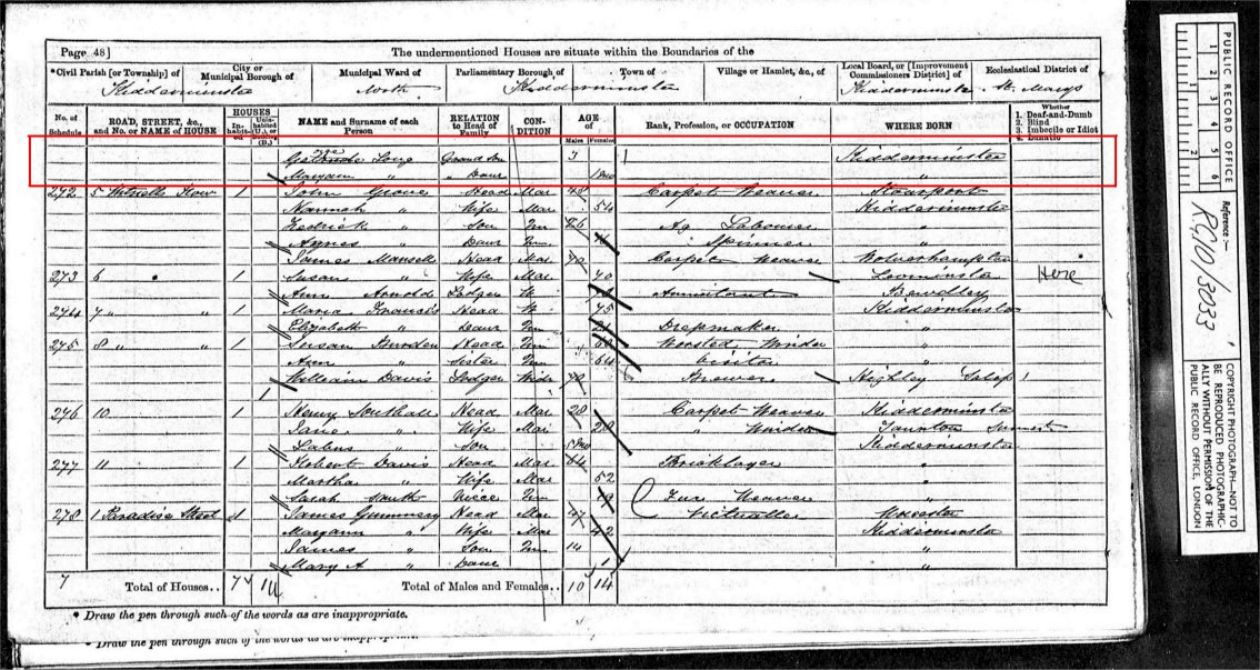 Page 48]
The undermentioned Houses are situate within the Boundaries of the
*Civil Parish [or Township] of Kidderminster
City or Municipal Borough of
Municipal Ward of North
Parliamentary Borough of Kidderminster
Town of
Village or Hamlet, &c., of
Local Board, or [Improvement Commissioners District] of Kidderminster
Ecclesiastical District of St. Marys
No. of Schedule
ROAD, STREET, &c., and No. or NAME of HOUSE
HOUSES
NAME and Surname of each Person
RELATION to Head of Family
CONDITION
AGE of
Males Females
Rank, Profession, or OCCUPATION
WHERE BORN
Whether
1. Deaf-and-Dumb
2. Blind
3. Imbecile or Idiot
4. Lunatic
Grand Son 3 Kidderminster
Maryann " " Daur "
272 5 1 John Grove Head Mar 48 Carpet Weaver Stourport
Hannah " Wife Mar 54 Kidderminster
Fedrick " Son Un 26 Ag Labourer "
Agnes " Daur Un Spinner "
James Mansell Head Mar 40 Carpet Weaver Wolverhampton
273 6 " 1 Susan " Wife Mar 40 Leominster Here
Ann Arnold Lodger W Annuitant Bewdley
274 7 " " 1 Maria Francis Head W 45 Kidderminster
Elizabeth " Daur Un 21 Dressmaker "
275 8 " " 1 Susan Burden Head Un 60 Worsted Winder "
Ann " Sister Un 64 Visitor "
William Davis Lodger Widr Brewer Highley Salop
276 10 1 Henry Southall Head Mar 28 Carpet Weaver Kidderminster
Jane " Wife Mar 28 " Winder Taunton Somerset
" Son Kidderminster
277 11 1 Robert Davis Head Mar 64 Bricklayer "
Martha " Wife Mar 52 "
Sarah South Niece Un 19 Weaver "
278 1 Paradise Street 1 James Gummery Head Mar 47 Victualler Worcester
Maryann " Wife Mar 42 Kidderminster
James " Son Un 14 "
Mary A " Daur 1 "
7 Total of Houses.. 7
Total of Males and Females.. 10 14
* Draw the pen through such of the words as are inappropriate.
* Draw the pen through such of the words as are inappropriate.
PUBLIC RECORD OFFICE
1 2 3 4 5 6
1 2
Reference :—
RG10/3033
COPYRIGHT PHOTOGRAPH—NOT TO BE REPRODUCED PHOTOGRAPHICALLY WITHOUT PERMISSION OF THE PUBLIC RECORD OFFICE, LONDON